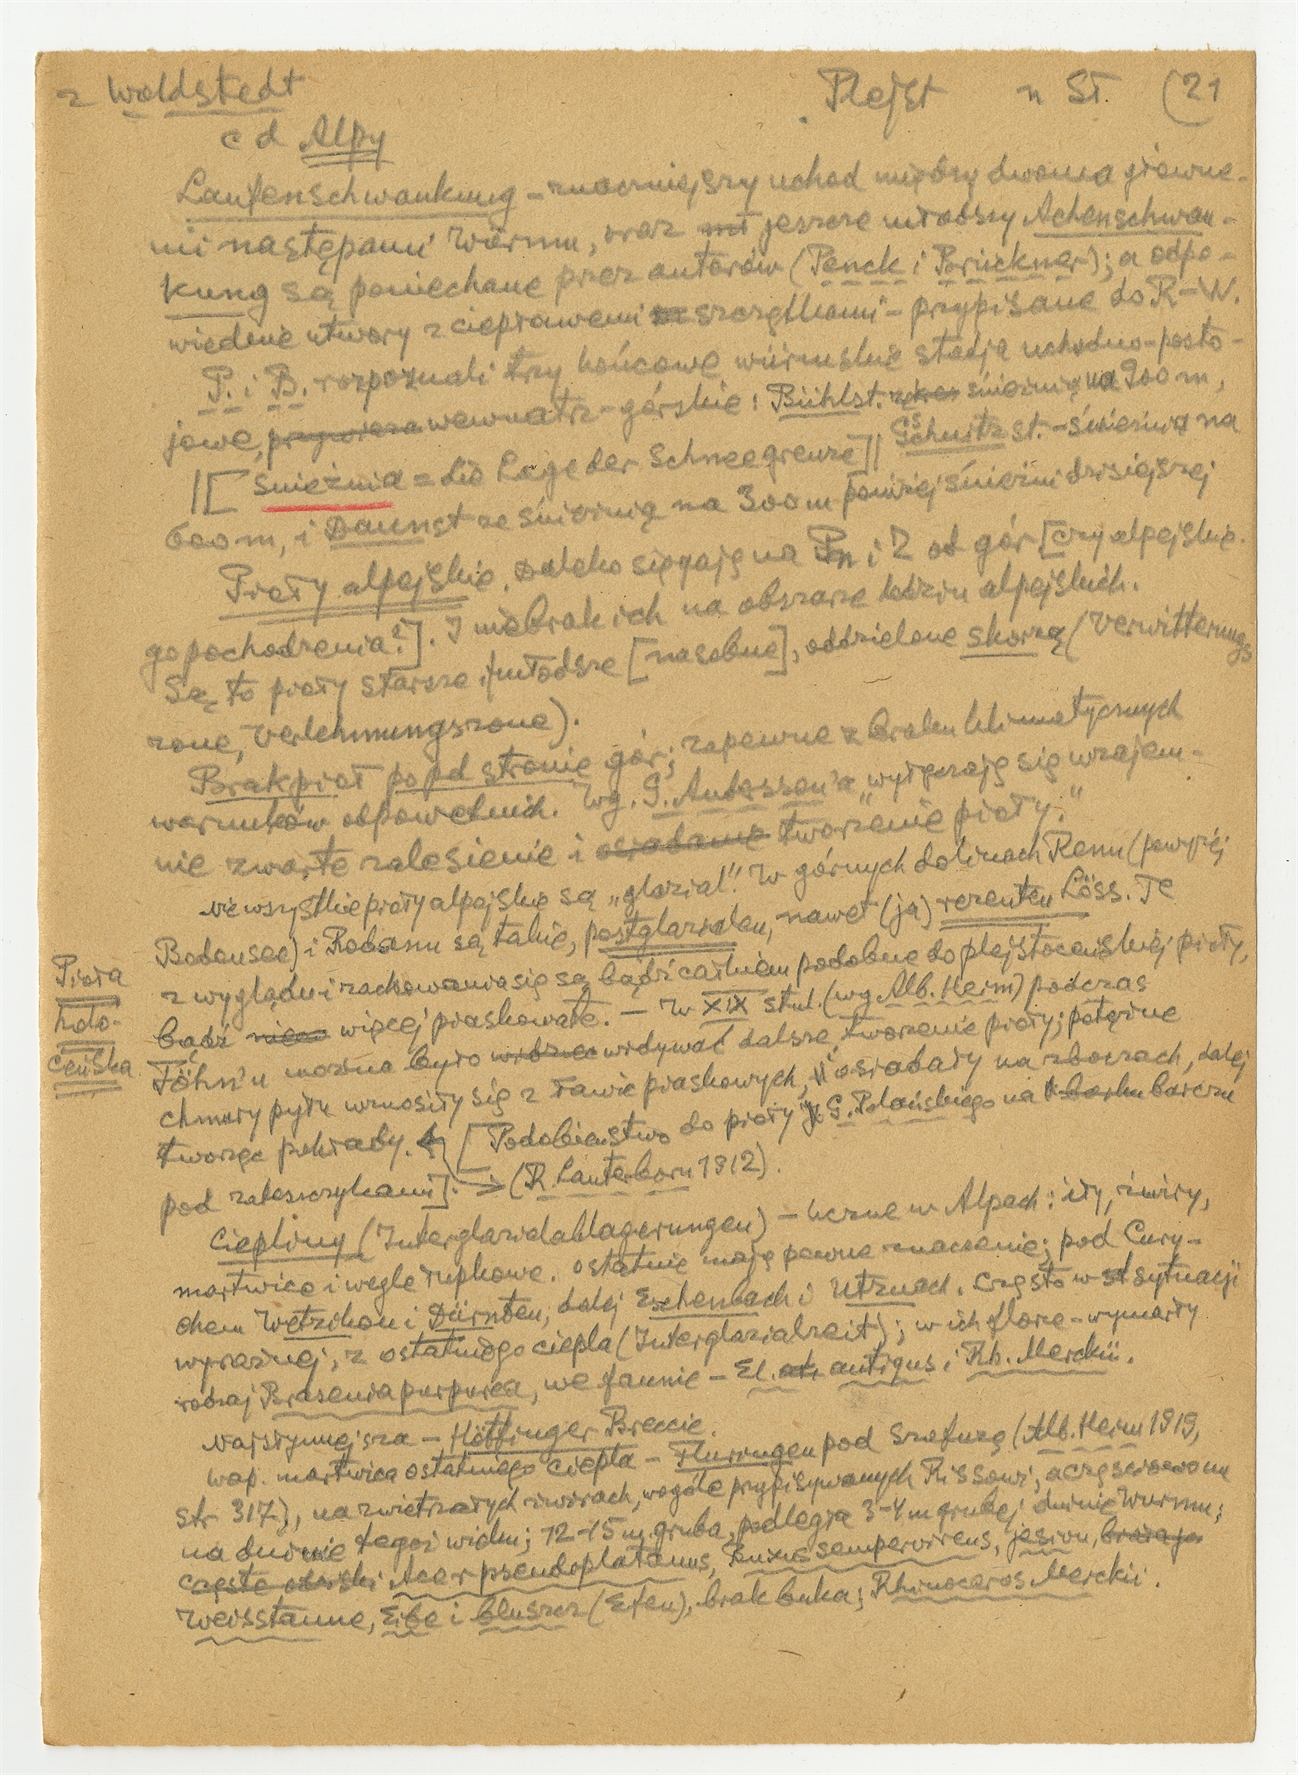 z Woldstedt Plejst n St. (21
c d Alpy
Laufenschwankung – znaczniejszy uchod między dwoma główne-
mi następami Würmu, oraz jeszcze młodszy Achenschwan-
kung są poniechane przez autorów (Penck i Brückner); a odpo-
wiednie utwory z ciepławemi szczątkami – przypisane do R–W.
P. i B. rozpoznali trzy końcowe würmskie stadja uchodno-posto-
jowe, wewnątrz-górskie: Bühlst. śnieżnią na 900 m,
|[śnieżnia = die Lage der Schneegrenze]| Gschnitzst. – śnieżnią na
600 m, i Daunst ze śnieżnią na 300 m poniżej śnieżni dzisiejszej
Pioły alpejskie. Daleko sięgają na Pn i Z od gór [czy alpejskie-
go pochodzenia?]. I nie brak ich na obszarze łoziu alpejskich.
Są to pioły starsze i młodsze [nasobne], oddzielone skorzą (Verwitterungs
zone, Verlehmungszone).
Brak pioł po pd stronie gór; zapewne z braku klimatycznych
warunków odpowiednich. Wg. G. Anderszon'a „wyłączają się wzajem-
nie zwarte zalesienie i tworzenie pioły."
Nie wszystkie pioły alpejskie są „glazial". W górnych dolinach Renu (powyżej
Bodensee) i Rodanu są takie, postglazialen, nawet (ja) rezenten Löss. Te
z wyglądu i zachowania się są bądź całkiem podobne do plejstoceńskiej pioły,
bądź więcej piaskowate. – W XIX stul. (wg Alb. Heim) podczas
Föhn'u można było widywać dalsze tworzenie pioły; potężne
chmary pyłu wznosiły się z ławic piaskowych, i osiadały na zboczach, dalej
tworząc pokrady. [Podobieństwo do pioły G. Polańskiego na barczu
pod zaleszczykami]. → (R. Lauterborn 1912).
Pioła
holo-
ceńska
Ciepliny (Interglazialablagerungen) – liczne w Alpach: iły, żwiry,
martwice i węgle łupkowe. Ostatnie mają pewne znaczenie; pod Cury-
chem Wetzikon i Dürnten, dalej Eschenbach i Utznach. Często w sytuacji
wyraźnej, z ostatniego ciepła (Interglazialzeit); w ich florze – wymarły
rodzaj Brasenia purpurea, we faunie – El. antiqus i Rh. Merckii.
Najsłynniejsza – Höttinger Breccie.
Wap. martwica ostatniego ciepła – Flurlingen pod Szafuzą (Alb. Heim 1919,
str 317), na zwietrzałych żwirach, wogóle przypisywanych Rissowi, a częściowo
na dunie tegoż wieku; 12–15 m. gruba, podległa 3–4 m grubej dunie Würmu;
Acer pseudoplatanus, Buxus sempervirens, jesion,
Weisstanne, Eibe i bluszcz (Efeu), brak buka; Rhinoceros Merckii.